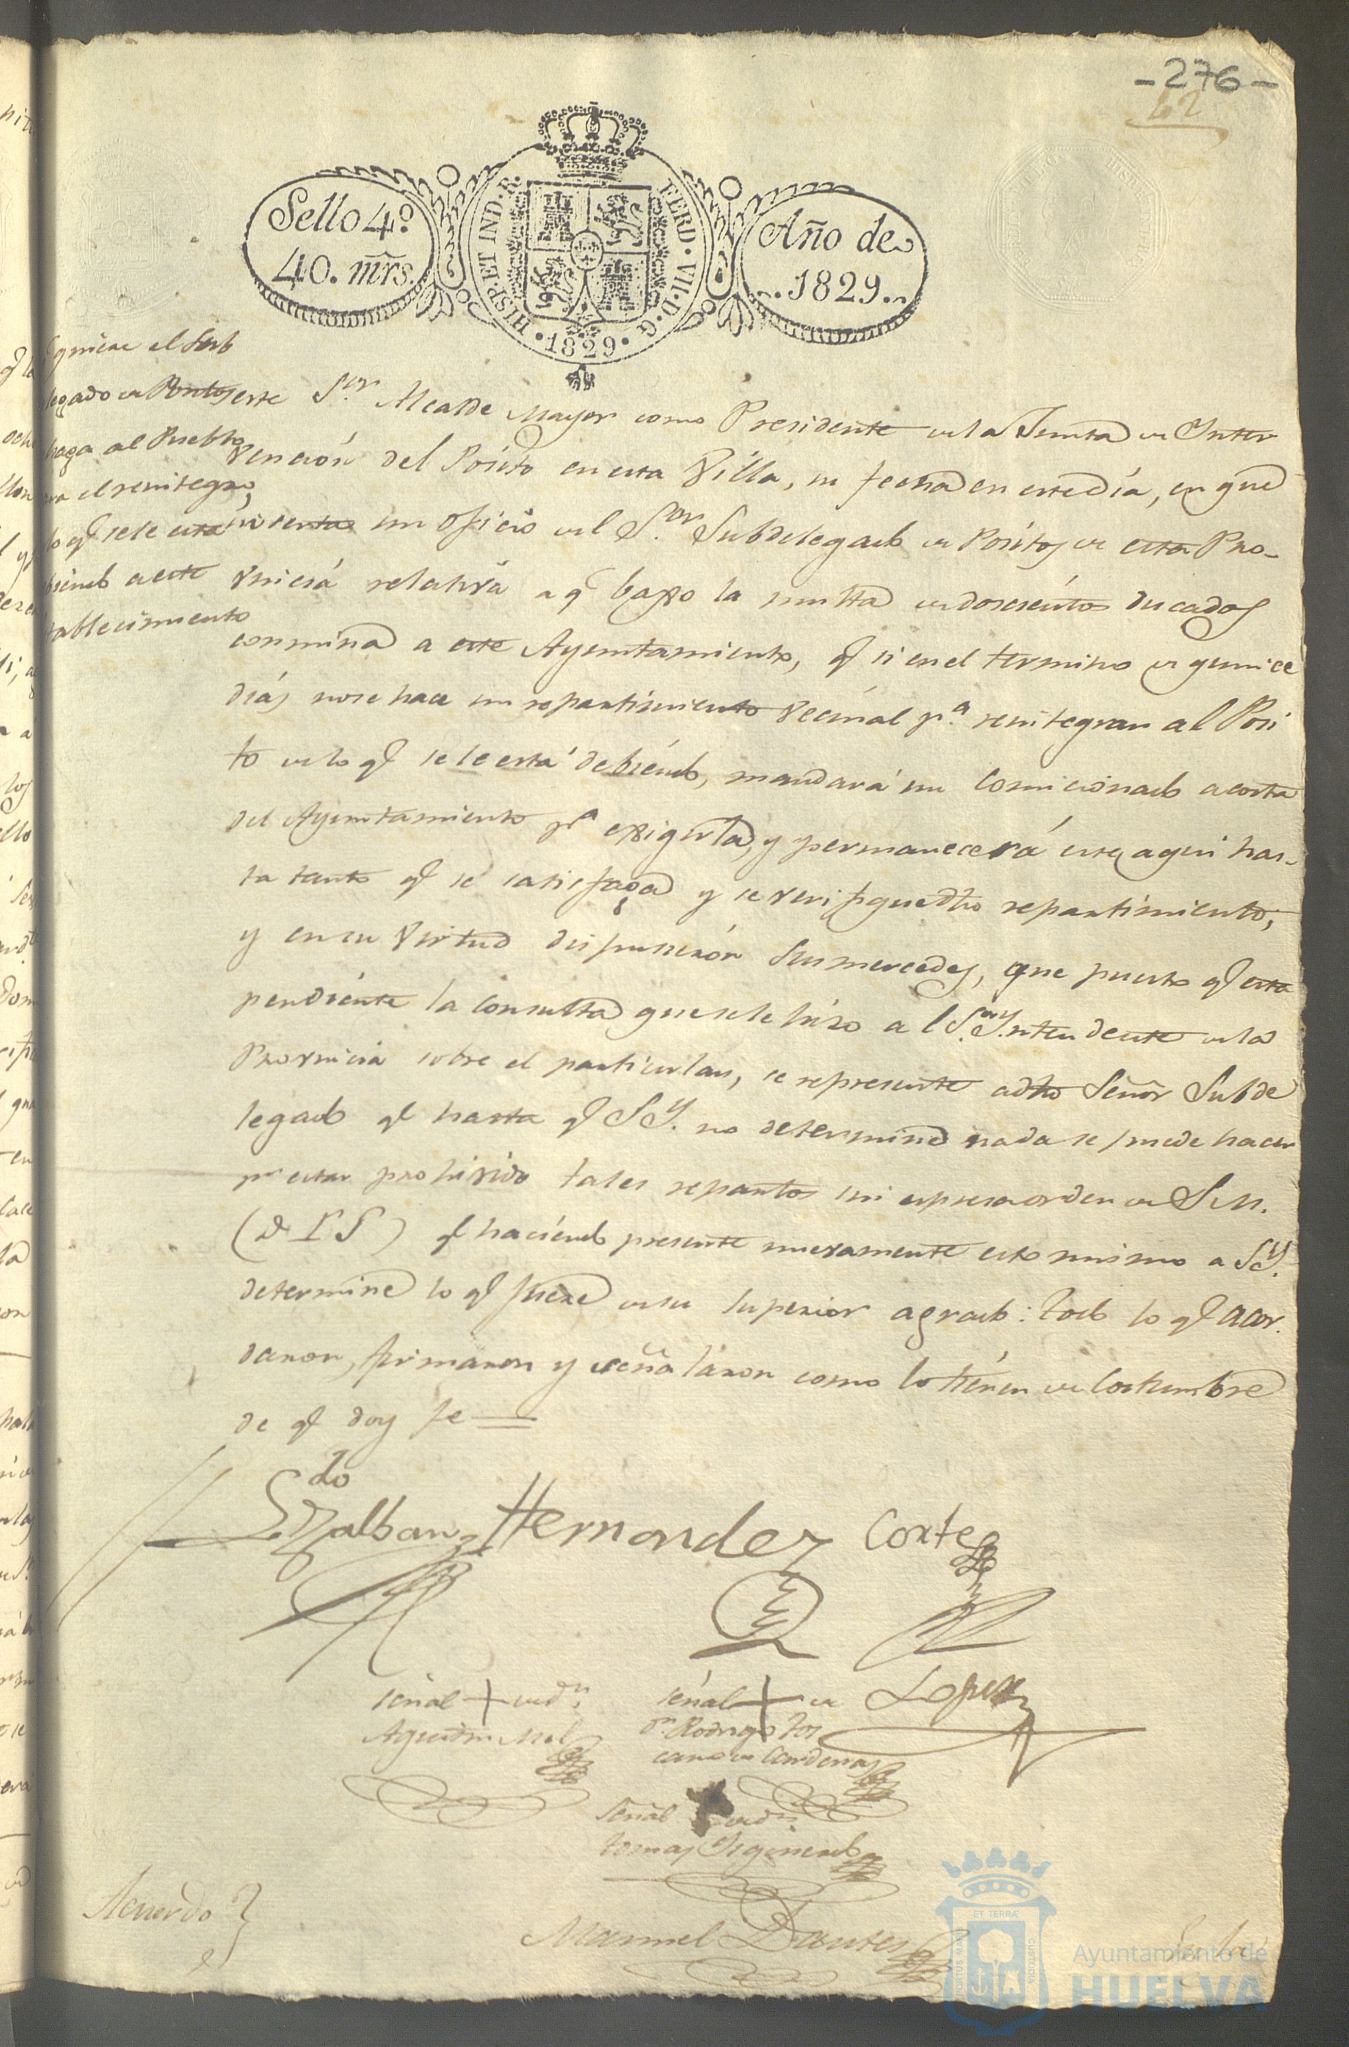 -276-
42
Sello 4º
40. mrs.
HISP. ET IND. R.
FERD. VII. D. G.
1829
Año de
1829.
quiere el Sub
legado de Positos
haga al Pueblo
para el reintegro
de lo q.e se le está
debiendo a este
establecimiento
este S.or Alcalde Mayor como Presidente de la Junta de Inter
vención del Pósito en esta Villa, su fecha en este día, en que
inserta un oficio del S.or Subdelegado de Pósitos de esta Pro-
vincia relativa a q.e baxo la multa de doscientos ducados
conmina a este Ayuntamiento, q.e si en el termino de quince
días no se hace un repartimiento vecinal p.a reintegrar al Posi
to de lo q.e se le está debiendo, mandará un Comicionado a costa
del Ayuntamiento p.a exigirla, y permanecerá este aquí has-
ta tanto q.e se satisfaga y se verifique dho repartimiento,
y en su virtud dispusieron Sus mercedes, que puesto q.e esta
pendiente la consulta que se le hizo al S.or Yntendente de la
Provincia sobre el particular, se represente a dho Señor Subde
legado q.e hasta q.e S.Y. no determine nada se puede hacer
p.r estar prohivido tales repartos sin expresa orden de S.M.
(D L G) q.e haciendo presente nuevamente esto mismo a S.Y.
determine lo q.e fuere de su superior agrado: todo lo q.e acor
daron, firmaron y señalaron como lo tienen de costumbre
de q.e doy fe
L.do Galban Hernandez Cortes
señal + de D.n
Agustin
señal + de
D.n Rodrigo Tos
cano de Cardenas
Lopez
Señal + de D.n
Tomas
Manuel Dantes
Acuerdo
ET TERRÆ
CUSTODIA
Ayuntamiento de
HUELVA